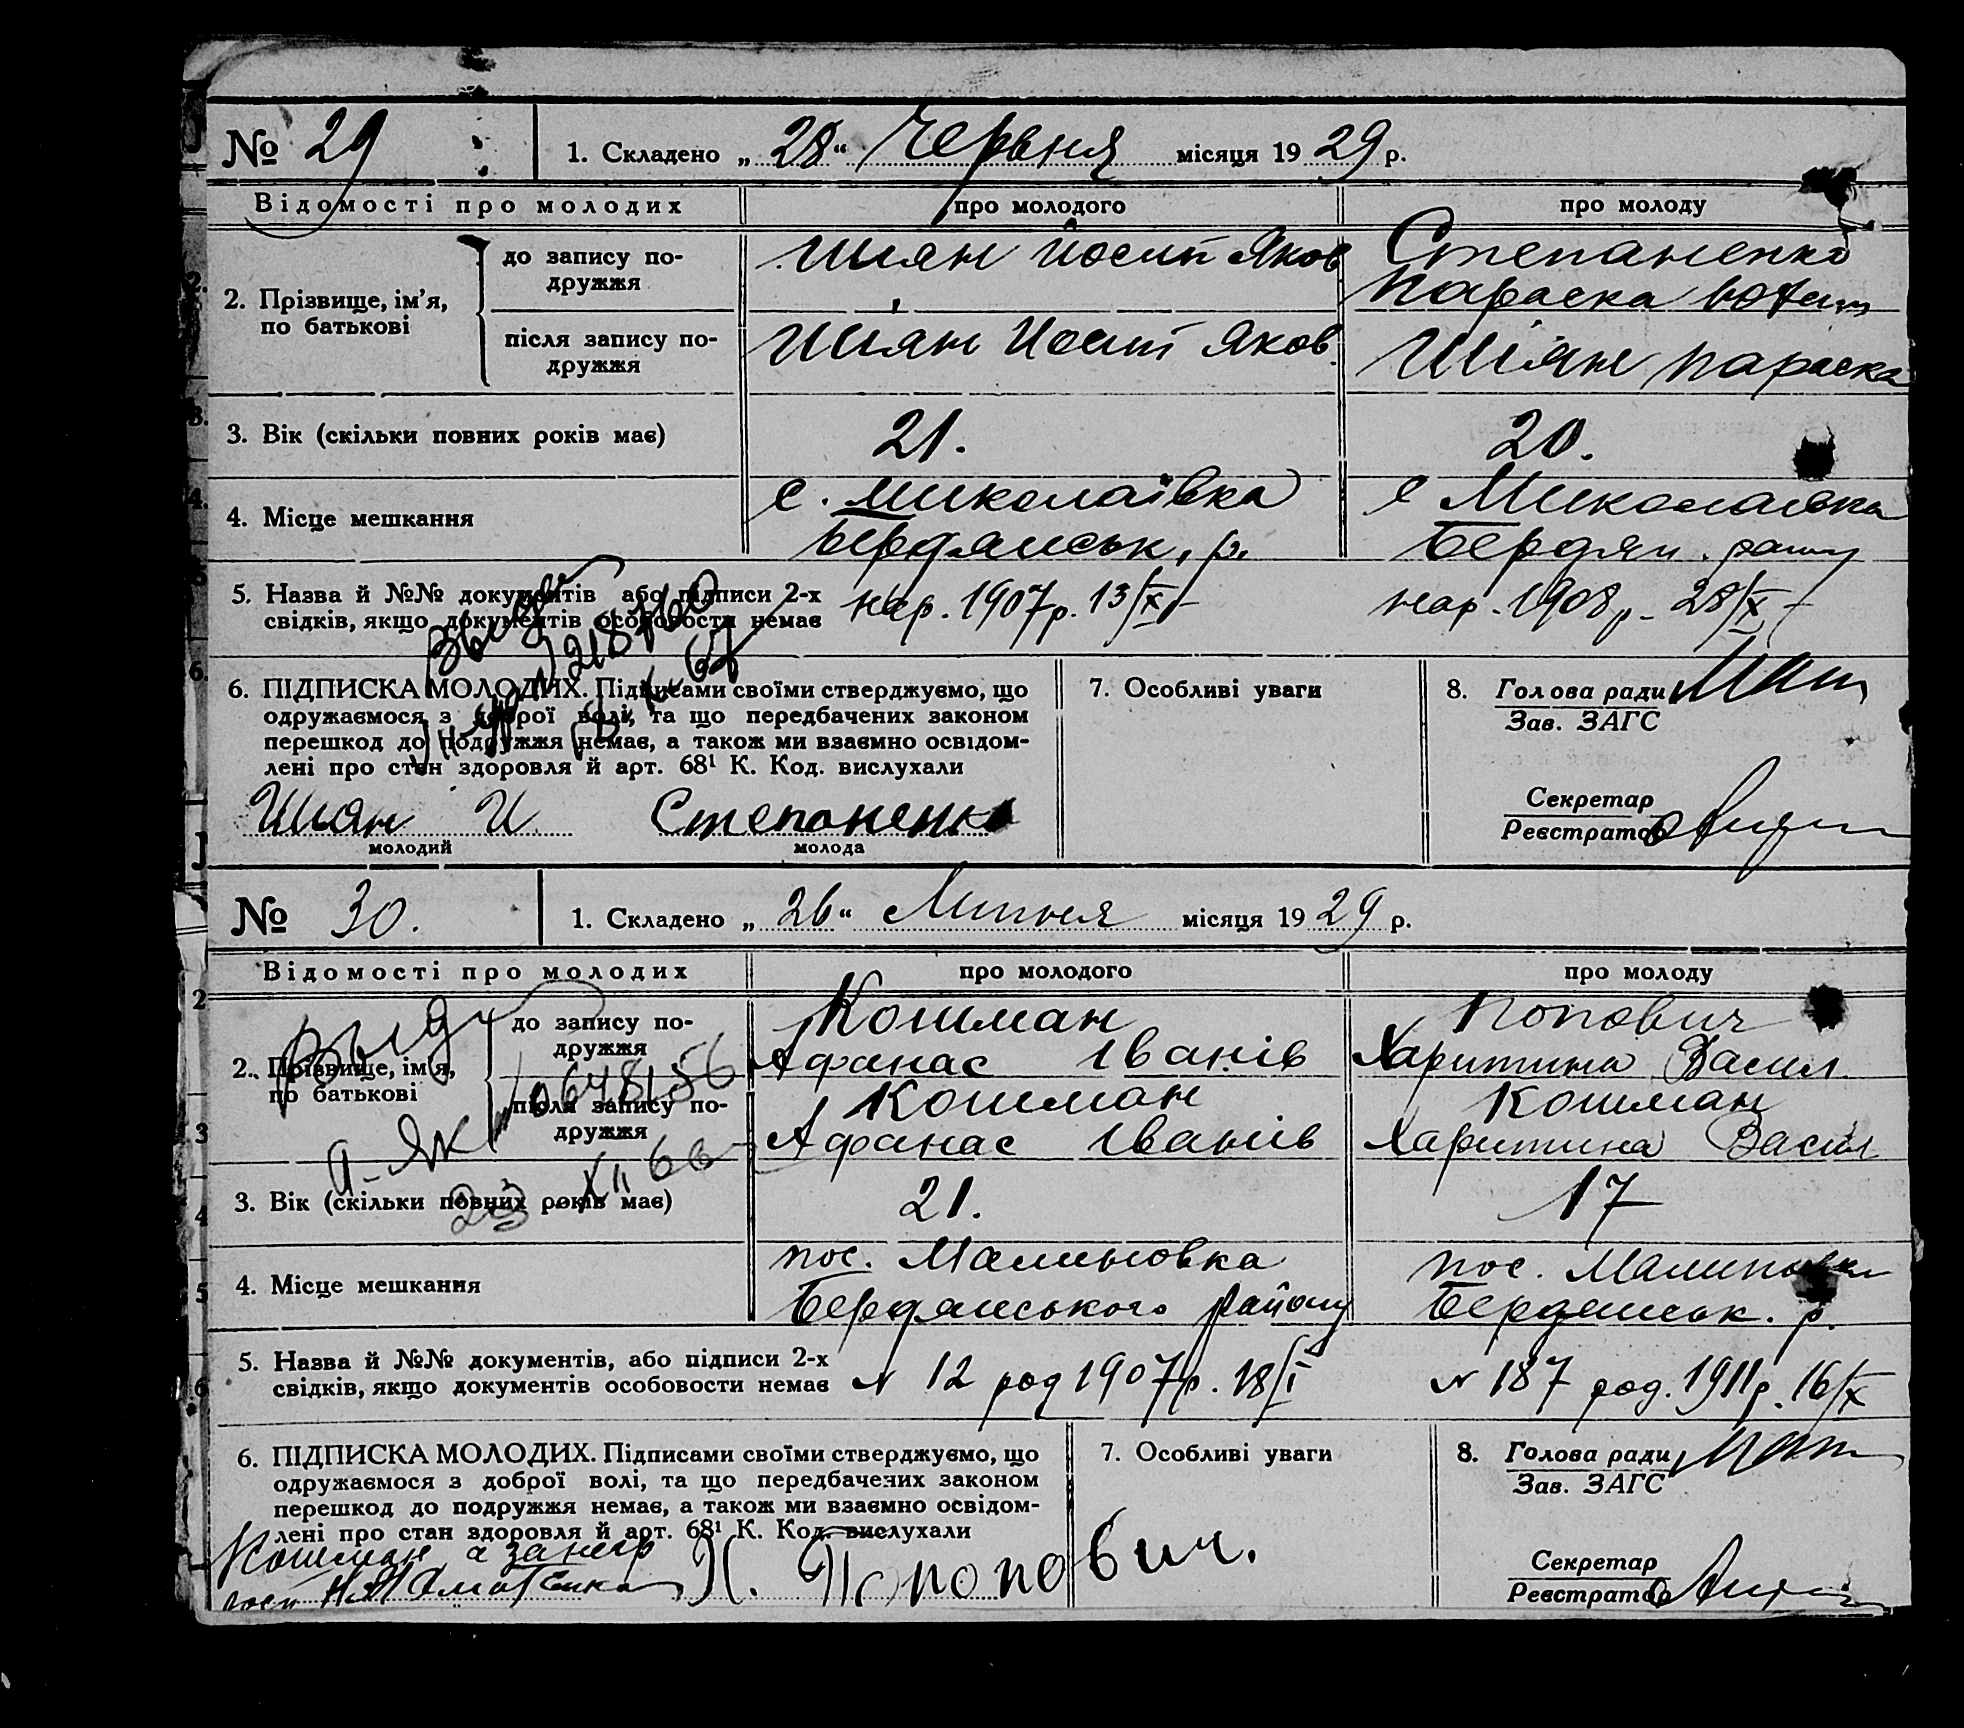 № 29
1. Складено „ 28 “ Червня місяця 1929 р.
Відомості про молодих
про молодого
про молоду
2. Прізвище, ім'я,
по батькові
до запису по-
дружжя
Шиян Йосип Яков
Степаненко
Параска
після запису по-
дружжя
Шиян Йосип Яков.
Шиян Параска
3. Вік (скільки повних років має)
21.
20.
4. Місце мешкання
с. Миколаївка
Бердянськ. р.
с Миколаївка
Бердян. району
5. Назва й №№ документів або підписи 2-х
свідків, якщо документів особовости немає
нар. 1907 р. 13/X
нар. 1908 р. 28/X
6. ПІДПИСКА МОЛОДИХ. Підписами своїми стверджуємо, що
одружаємося з доброї волі, та що передбачених законом
перешкод до подружжя немає, а також ми взаємно освідом-
лені про стан здоровля й арт. 68¹ К. Код. вислухали
Шиян И.
Степоненко
молодий
молода
7. Особливі уваги
8. Голова ради
Зав. ЗАГС
Секретар
Реєстратор
№ 30.
1. Складено „ 26 “ Липня місяця 1929 р.
Відомості про молодих
про молодого
про молоду
2. Прізвище, ім'я,
по батькові
до запису по-
дружжя
Кошман
Афанас Іванів
Попович
Харитина Васил.
після запису по-
дружжя
Кошман
Афанас Іванів
Кошман
Харитина Васил
3. Вік (скільки повних років має)
21.
17
4. Місце мешкання
пос. Малиновка
Бердянського району
пос. Малиновка
Бердянськ. р.
5. Назва й №№ документів, або підписи 2-х
свідків, якщо документів особовости немає
N 12 род 1907 р. 18/I
N 187 род. 1911 р. 16/X
6. ПІДПИСКА МОЛОДИХ. Підписами своїми стверджуємо, що
одружаємося з доброї волі, та що передбачених законом
перешкод до подружжя немає, а також ми взаємно освідом-
лені про стан здоровля й арт. 68¹ К. Код. вислухали
Кошман а за негр
Х. Попопович.
7. Особливі уваги
8. Голова ради
Зав. ЗАГС
Секретар
Реєстратор